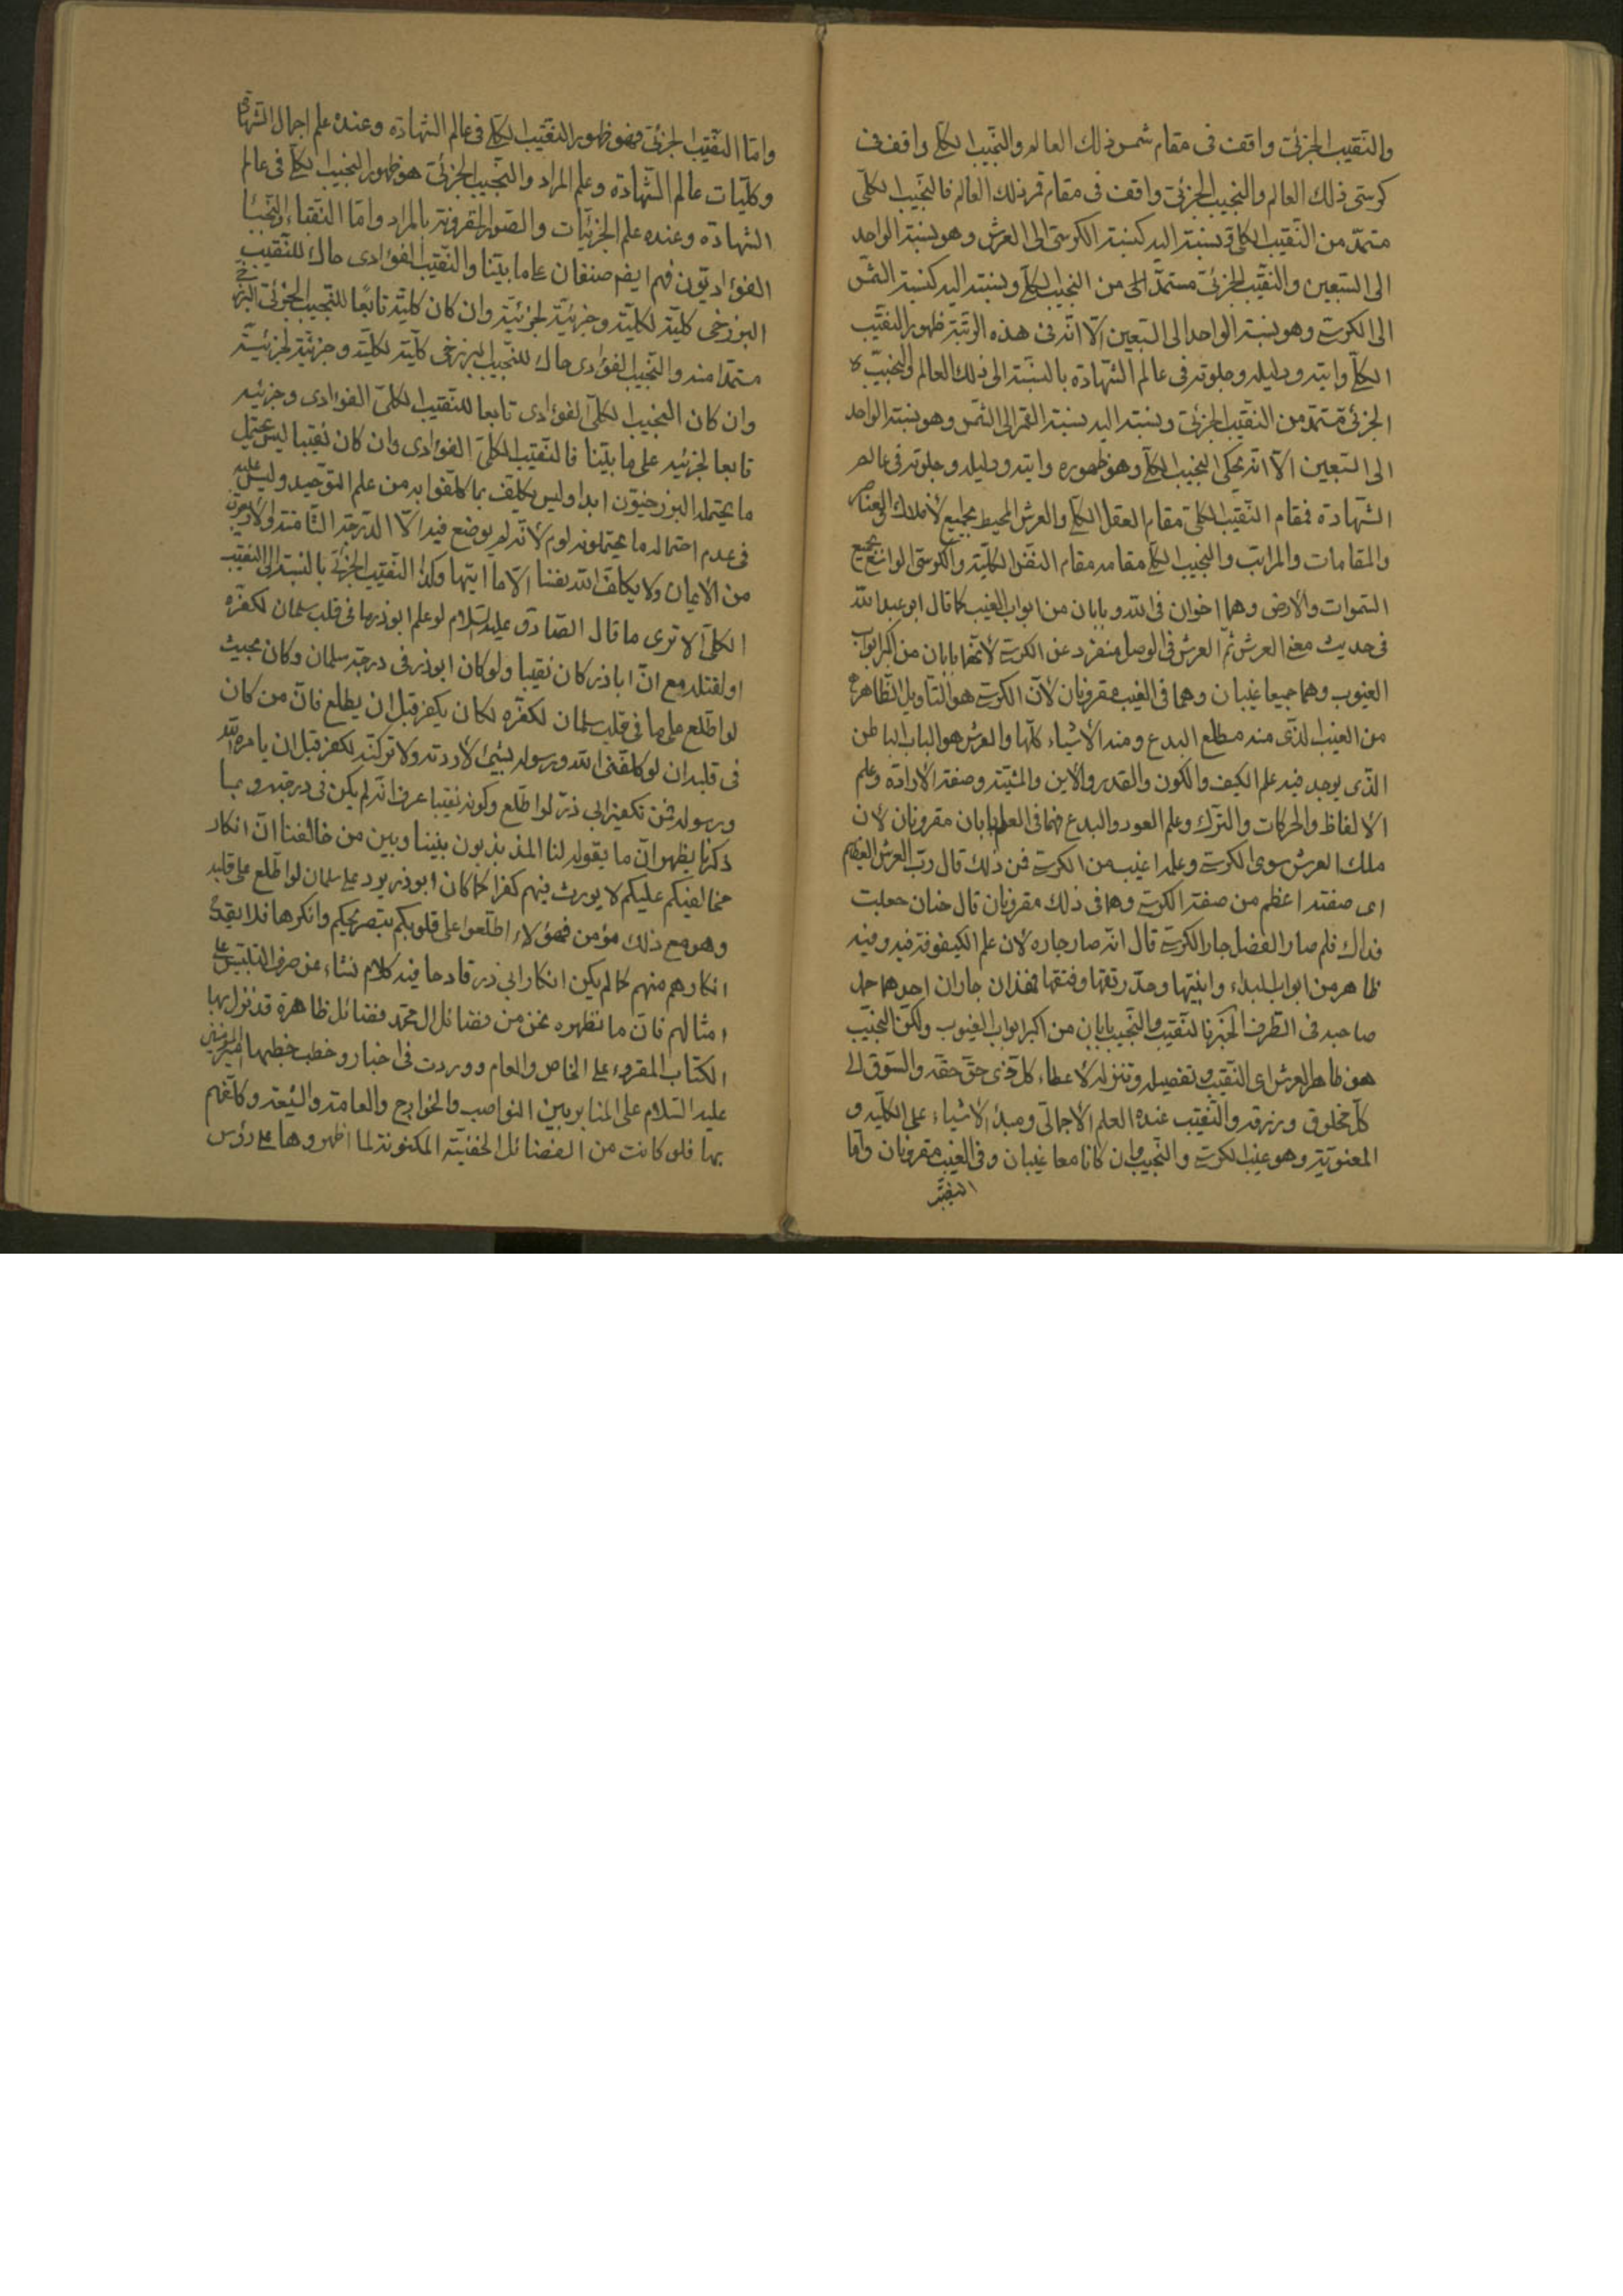 والنقيب الجزئى واقف فى مقام شمس ذلك العالم والنجيب الكلى واقف فى
كرسى ذلك العالم والنجيب الجزئى واقف فى مقام قمر ذلك العالم فالنجيب الكلى
مستمد من النقيب الكلى ونسبته اليه كنسبة الكرسى الى العرش وهو نسبة الواحد
الى السبعين والنقيب الجزئى مستمد من النجيب الكلى ونسبته اليه كنسبة الشمس
الى الكرسى وهو نسبة الواحد الى السبعين الا انه فى هذه الرتبة ظهور النقيب
الكلى وايته ودليله وجلوته فى عالم الشهادة بالنسبة الى ذلك العالم والنجيب
الجزئى مستمد من النقيب الجزئى ونسبته اليه نسبة القمر الى الشمس وهو نسبة الواحد
الى السبعين الا انه يحكى النجيب الكلى وهو ظهوره وايته ودليله وجلوته فى عالم
الشهادة فمقام النقيب الكلى مقام العقل الكلى والعرش المحيط بجميع الأفلاك والعناصر
والمقامات والمراتب والنجيب الكلى مقامه مقام النفس الكلية والكرسى الواسع بجميع
السموات والارض وهما اخوان فى الله وبابان من ابواب الغيب كما قال ابو عبد الله
فى حديث معنى العرش ثم العرش فى الوصل منفرد عن الكرسى لأنهما بابان من اكبر ابواب
الغيوب وهما جميعا غيبان وهما فى الغيب مقرونان لأن الكرسى هو الباب الظاهر
من الغيب الذى منه مطلع البدع ومنه الأشياء كلها والعرش هو الباب الباطن
الذى يوجد فيه علم الكيف والكون والقدر والأين والمشية وصفة الأرادة وعلم
الالفاظ والحركات والترك وعلم العود والبدع فهما فى العلم بابان مقرونان لأن
ملك العرش سوى الكرسى وعلمه اغيب من الكرسى فمن ذلك قال رب العرش العظيم
اى صفته اعظم من صفة الكرسى وهما فى ذلك مقرونان قال حنان جعلت
فداك فلم صار الفضل جار الكرسى قال انه صار جاره لأن علم الكيفوفة فيه وفيه
ظاهر من ابواب البداء وانيتها وحد رتقها وفتقها فهذان جاران احدهما حمل
صاحبه فى الظرف الخبر فالنقيب والنجيب بابان من اكبر ابواب الغيوب ولكن النجيب
هو ظاهر العرش اى النقيب وتفصيله وتنزله لأعطاء كل ذى حق حقه والسوق الى
كل مخلوق رزقه والنقيب عنده العلم الأجمالى ومبدأ الأشياء على الكلية و
المعنوية وهو غيب الكرسى والنجيب وان كانا معا غيبان وفى الغيب مقرونان واما
النقيب
واما النقيب الجزئى فهو ظهور النقيب الكلى فى عالم الشهادة وعنده علم اجمال الشهادة
وكليات عالم الشهادة وعلم المراد والنجيب الجزئى هو ظهور النجيب الكلى فى عالم
الشهادة وعنده علم الجزئيات والصور المقرونة بالمراد واما النقباء والنجباء
الفؤاديون فهم ايضا صنفان على ما بينا والنقيب الفؤادى حاك للنقيب
البرزخى كليته لكليته وجزئيته لجزئيته وان كان كليته تابعا للنجيب الجزئى البرزخى
مستمدا منه والنجيب الفؤادى حاك للنجيب البرزخى كليته لكليته وجزئيته لجزئيته
وان كان النجيب الكلى الفؤادى تابعا للنقيب الكلى الفؤادى وجزئيه
تابعا لجزئيه على ما بينا فالنقيب الكلى الفؤادى وان كان نقيبا ليس يحتمل
ما يحتمله البرزخيون ابدا وليس يكلف بما كلفوا به من علم التوحيد وليس عليه
فى عدم احتماله ما يحتملونه لوم لأنه لم يوضع فيه الا الدرجة الثامنة
من الأيمان ولا يكلف الله نفسا الا ما اتيها وكذا النقيب الجزئى بالنسبة الى النقيب
الكلى الا ترى ما قال الصادق عليه السلام لو علم ابوذر ما فى قلب سلمان لكفره
او لقتله مع ان اباذر كان نقيبا ولو كان ابوذر فى درجة سلمان وكان بحيث
لو اطلع على ما فى قلب سلمان لكفره لكان يكفر قبل ان يطلع فان من كان
فى قلبه ان لو كلفنى الله ورسوله بشيئ لأرددته ولا تركته لكفر قبل ان يامره الله
ورسوله فمن تكفير ابى ذر لو اطلع وكونه نقيبا عرف انه لم يكن فى درجته وبما
ذكرنا يظهر ان ما يقوله لنا المذبذبون بيننا وبين من خالفنا ان انكار
مخالفيكم عليكم لا يورث فيهم كفرا كما كان ابوذر يرد على سلمان لو اطلع على قلبه
وهو مع ذلك مؤمن فهؤلاء اطلعوا على قلوبكم بتصريحكم وانكرها فلا يقدح
انكارهم منهم كما لم يكن انكار ابى ذر قادحا فيه كلام نشاء عن صرف التلبيس على
امثالهم فان ما نظهره نحن من فضائل ال محمد فضائل ظاهرة قد نزل بها
الكتاب المقروء على الخاص والعام ووردت فى اخبار وخطب خطبها امير المؤمنين
عليه السلام على المنابر بين النواصب والخوارج والعامة والشيعة وكلفهم
بها فلو كانت من الفضائل الخفية المكنونة لما اظهروها على رؤس